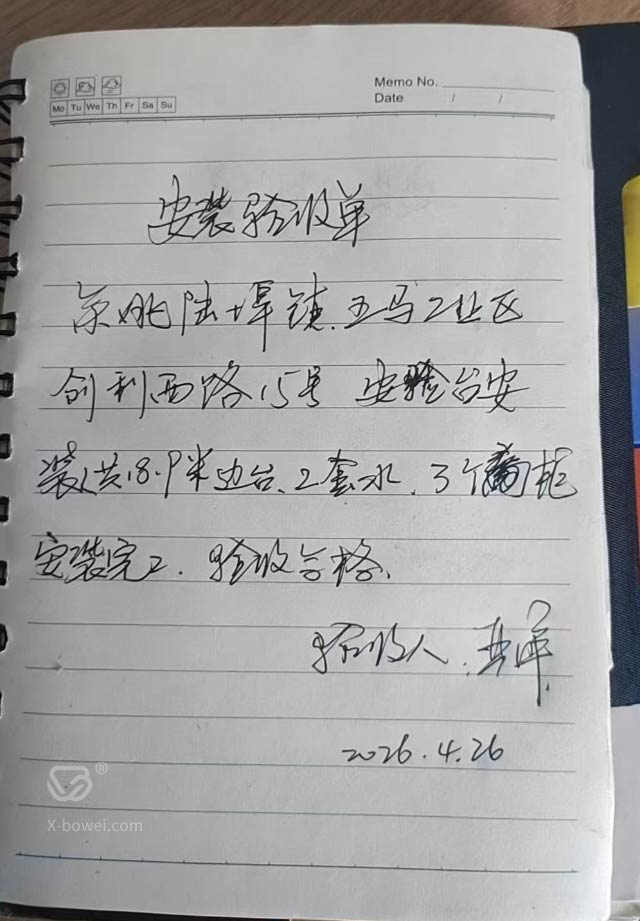 Memo No.
Mo Tu We Th Fr Sa Su
Date / /
安装验收单
余姚陆埠镇.五马工业区
创利西路15号 实验台安
装共18.9米边台、2套水.3个
安装完工.验收合格.
验收人.
2026.4.26
X-bowei.com